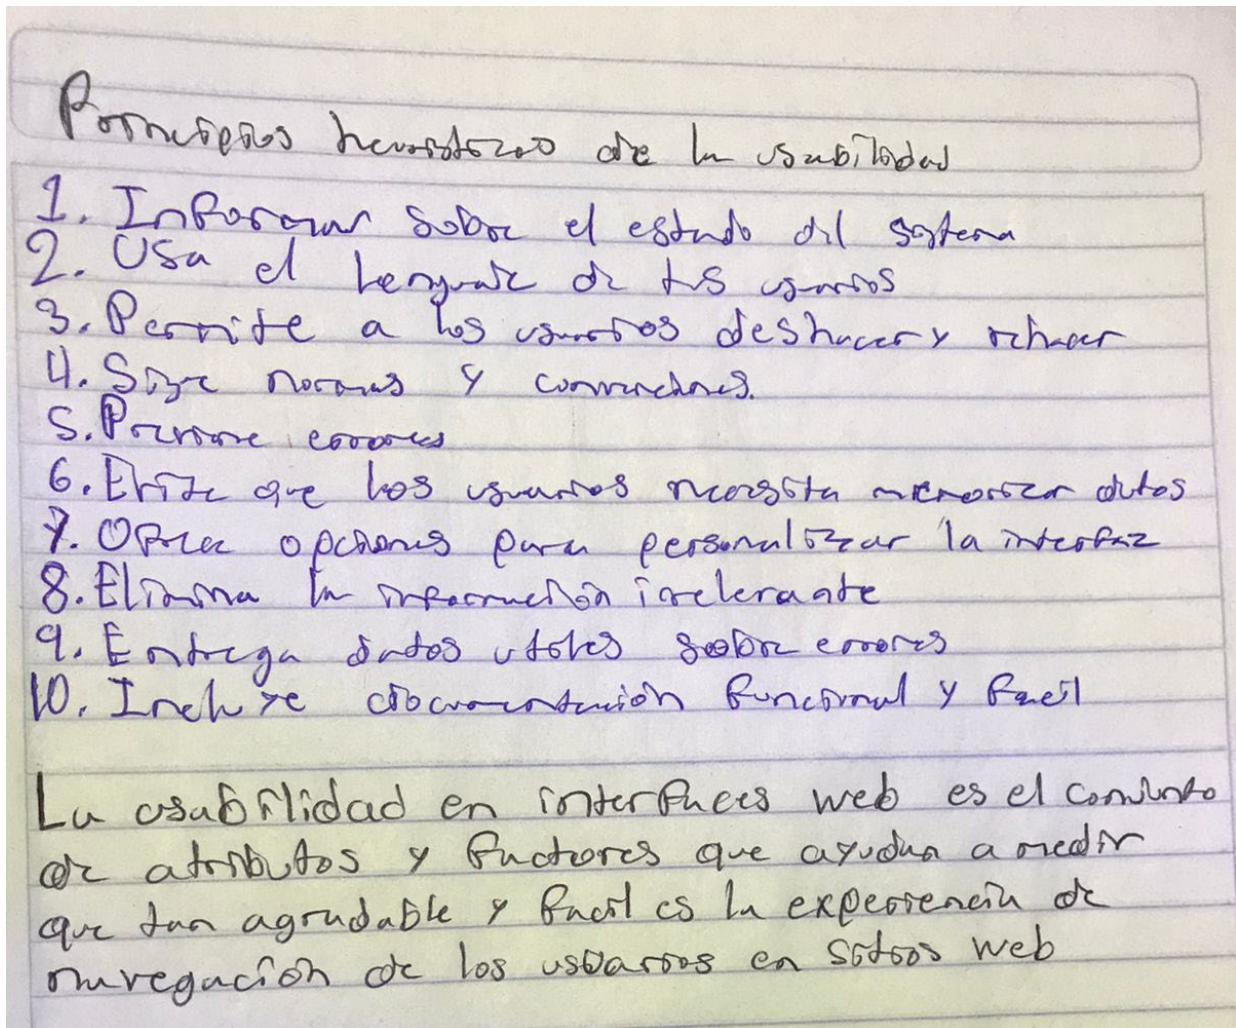 Principios heuristicos de la usabilidad
1. Informar sobre el estado del sistema
2. Usa el lenguaje de tus usuarios
3. Permite a los usuarios deshacer y rehacer
4. Sige normas y convenciones.
5. Previene errores
6. Evite que los usuarios necesita memorizar datos
7. Ofrece opciones para personalizar la interfaz
8. Elimina la información irrelevante
9. Entrega datos utiles sobre errores
10. Incluye documentación funcional y facil
La usabilidad en interfaces web es el conjunto
de atributos y factores que ayudan a medir
que tan agradable y facil es la experiencia de
navegación de los usuarios en sitios web